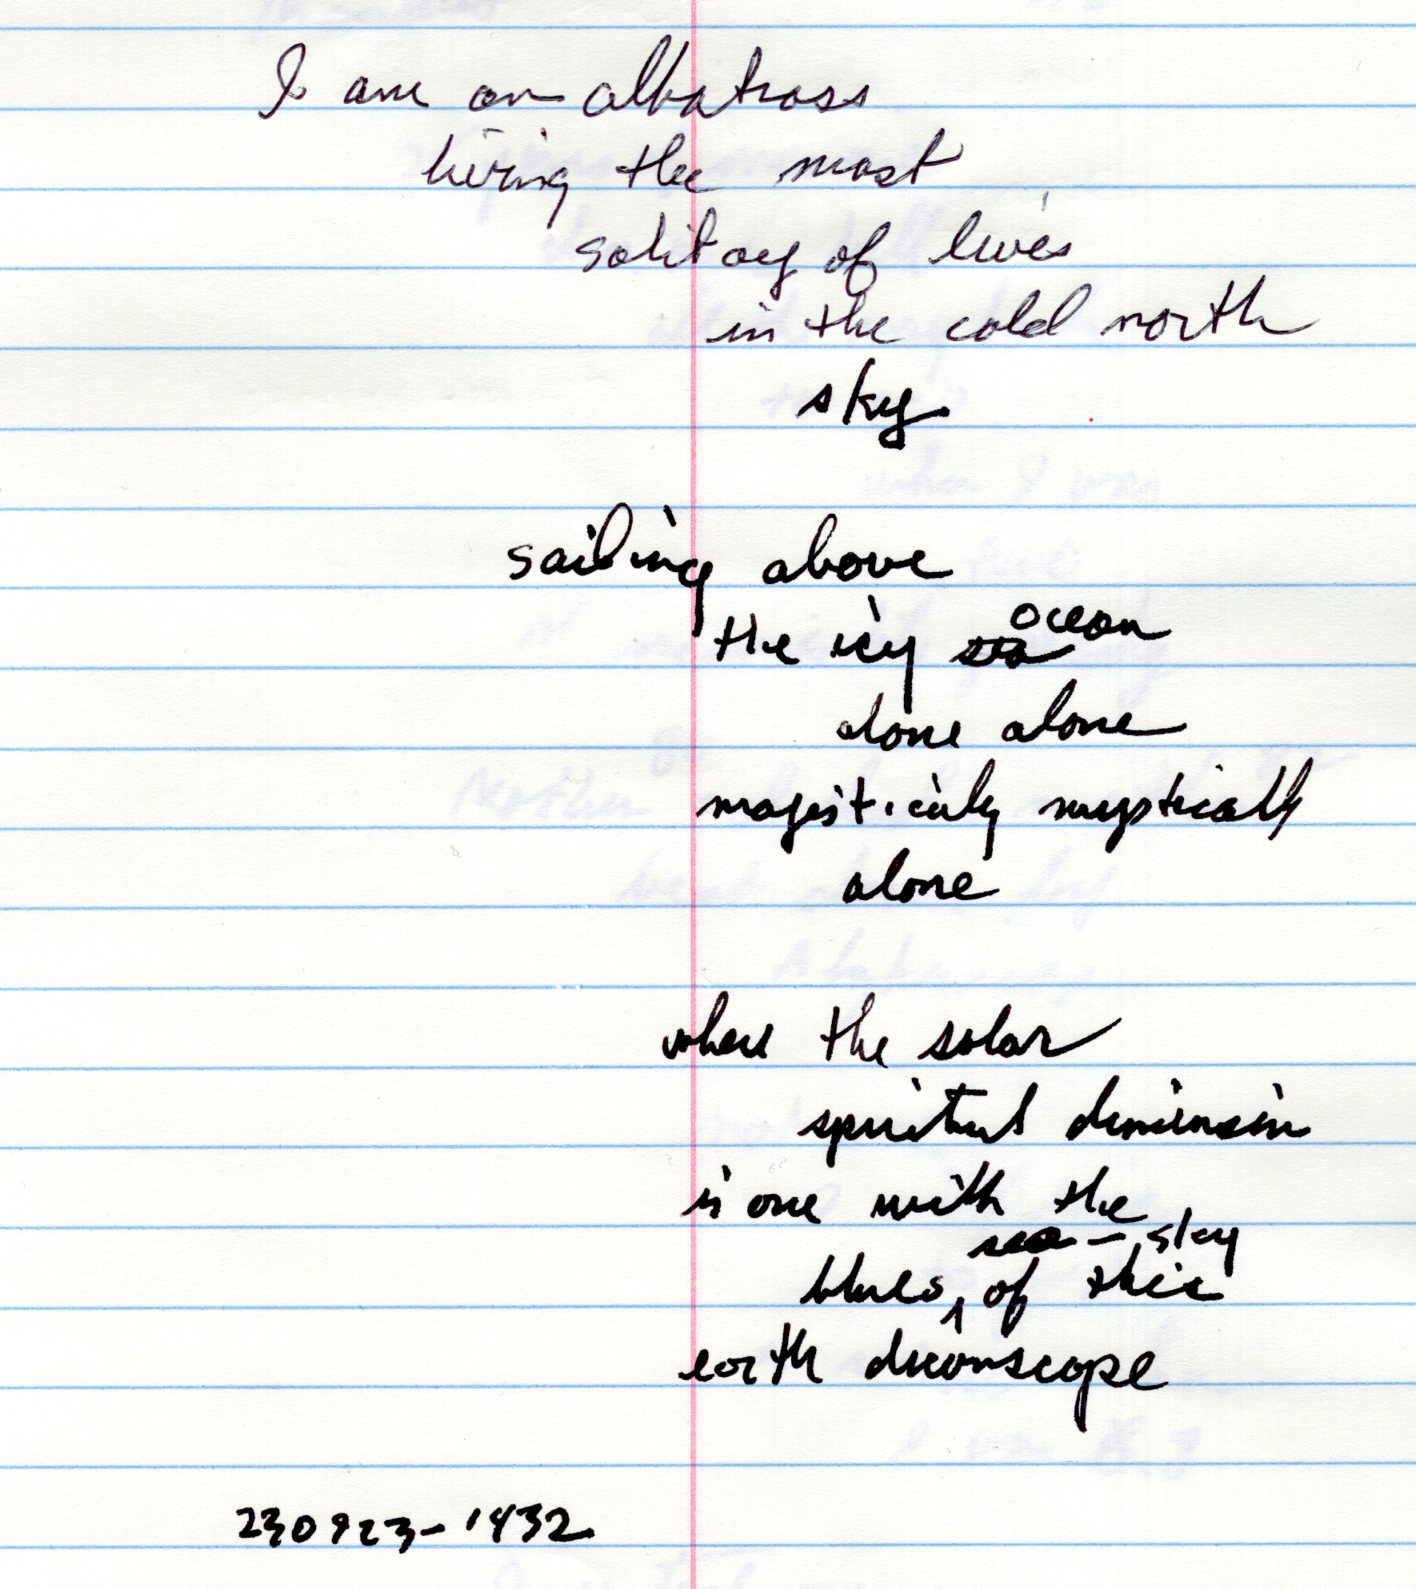 I am an albatross
living the most
solitary of lives
in the cold north
sky.
sailing above
the icy sea ocean
alone alone
majestically mystically
alone
where the solar
spiritual dimension
is one with the
sea-sky
blues of this
earth dreamscape
230923-1432